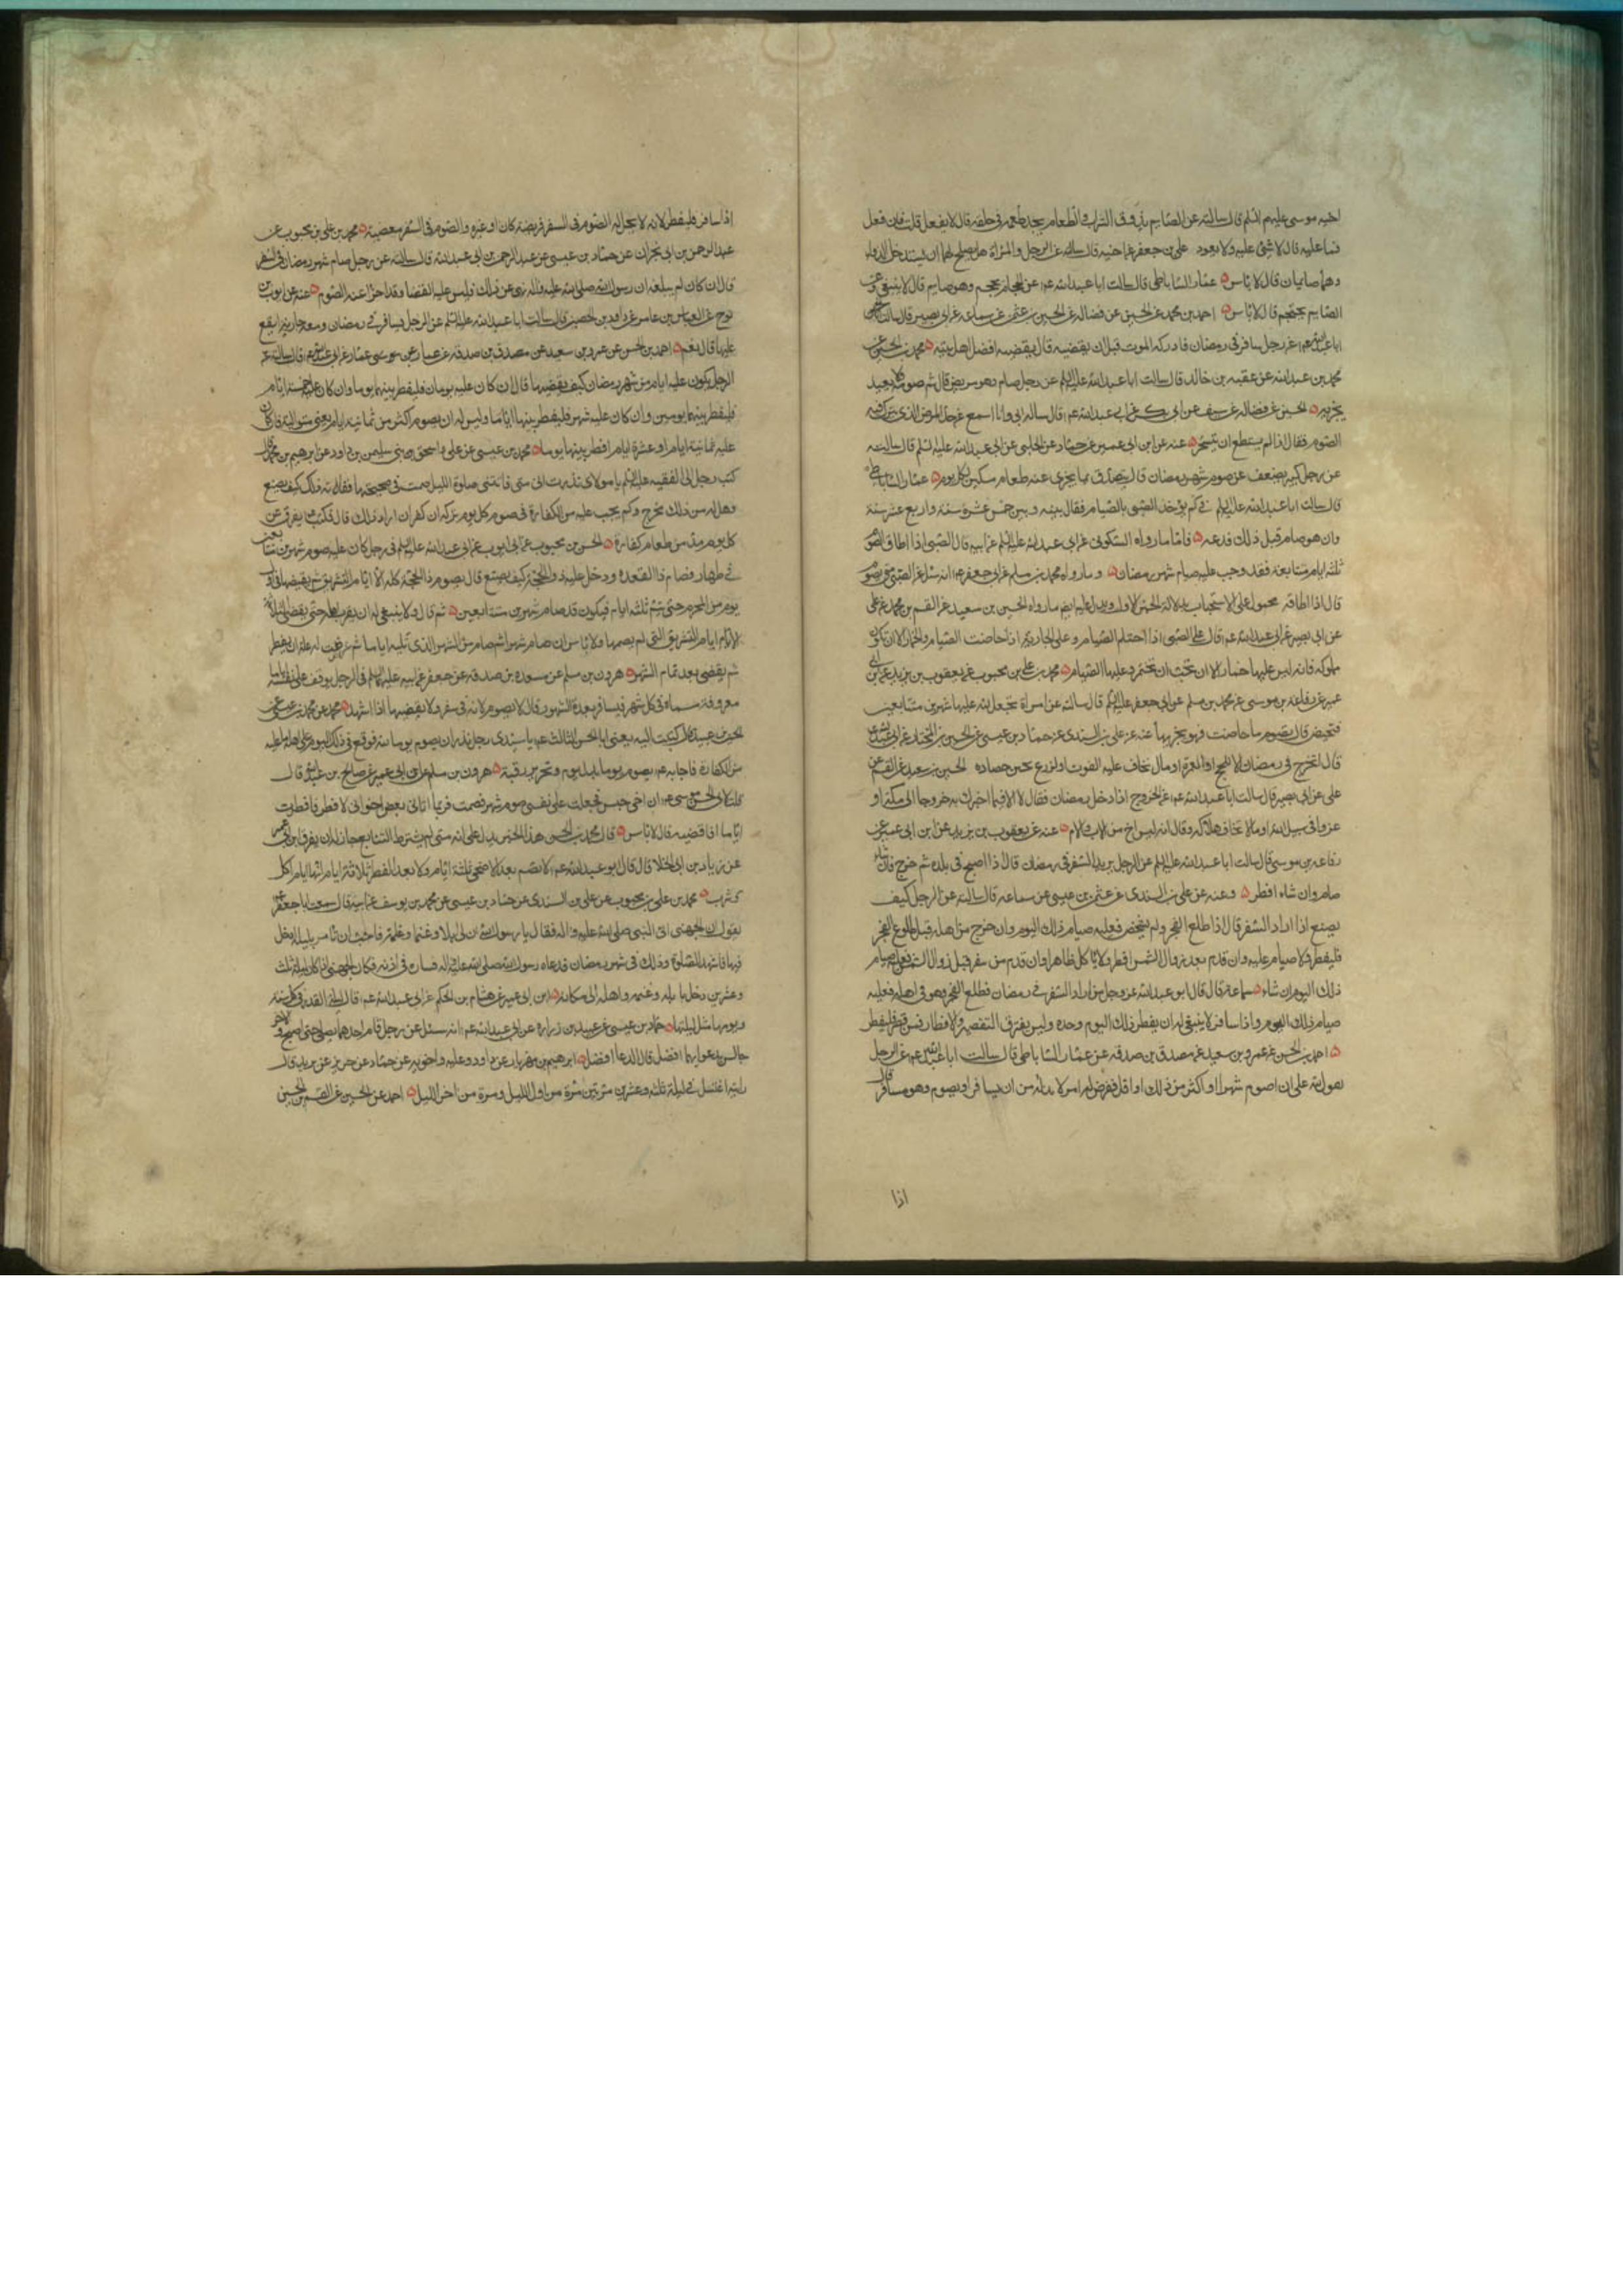 اخيه موسى عليهم السلم قال سالته عن الصايم يذوق الشراب والطعام يجد طعمه في حلقه قال لا يفعل قلت فان فعل
فما عليه قال لا شئ عليه ولا يعود علي بن جعفر عن اخيه قال سالته عن الرجل والمراة هل يصلح لهما ان يستدخلا الدواء
وهما صايمان قال لا باس عمار الساباطي قال سالت ابا عبد الله عم عن الحجام يحجم وهو صايم قال لا ينبغي وعن
الصايم يحتجم قال لا باس احمد بن محمد عن الحسين عن فضاله عن الحسين بن عثمن عن سماعه عن ابي بصير قال سالت
ابا عبد الله عم عن رجل سافر في رمضان فادركه الموت قبل ان يقضيه قال يقضيه افضل اهل بيته محمد بن الحسين عن
محمد بن عبد الله عن عقبه بن خالد قال سالت ابا عبد الله عليه السلم عن رجل صام وهو مريض قال يتم صومه ولا يعيد
يجزيه الحسين عن فضاله عن سيف عن ابي بكر عن ابي عبد الله عم قال ساله ابي وانا اسمع عن حد المرض الذي يترك فيه
الصوم فقال اذا لم يستطع ان يتسحر عنه عن ابن ابي عمير عن حماد عن الحلبي عن ابي عبد الله عليه السلم قال سالته
عن رجل كبير يضعف عن صوم شهر رمضان قال يتصدق بما يجزى عنه طعام مسكين لكل يوم عمار الساباطي
قال سالت ابا عبد الله عليه السلم في كم يؤخذ الصبي بالصيام فقال بينه وبين خمس عشرة سنة واربع عشر سنة
وان هو صام قبل ذلك فدعه فاما ما رواه السكوني عن ابي عبد الله عليه السلم عن ابيه قال الصبي اذا اطاق الصوم
ثلثه ايام متتابعة فقد وجب عليه صيام شهر رمضان وما رواه محمد بن مسلم عن ابي جعفر عم انه سئل عن الصبي متى يصوم
قال اذا اطاقه محمول على الاستحباب بدلالة الخبر الاول ويدل عليه ايضا ما رواه الحسين بن سعيد عن القسم بن محمد عن علي
عن ابي بصير عن ابي عبد الله عم قال على الصبي اذا احتلم الصيام وعلى الجارية اذا حاضت الصيام والخمار الا ان تكون
مملوكه فانه ليس عليها خمار الا ان تحب ان تختمر وعليها الصيام محمد بن علي بن محبوب عن يعقوب بن يزيد عن ابن ابي
عمير عن رفاعه بن موسى عن محمد بن مسلم عن ابي جعفر عليه السلم قال سالته عن امراة تجعل لله عليها شهرين متتابعين
فتحيض قال تصوم ما حاضت فهو يجزيها عنه عن علي بن السندي عن حماد بن عيسى عن الحسين بن المختار عن ابي عبد الله عم
قال لا تخرج في رمضان الا للحج او العمرة او مال تخاف عليه الفوت او لزرع يحين حصاده الحسين بن سعيد عن القسم عن
علي عن ابي بصير قال سالت ابا عبد الله عم عن الخروج اذا دخل رمضان فقال لا الا فيما اخبرك به خروج الى مكة او
غزو في سبيل الله او مال تخاف هلاكه وقال انه ليس اخ من الاب والام عنه عن يعقوب بن يزيد عن ابن ابي عمير عن
رفاعه بن موسى قال سالت ابا عبد الله عليه السلم عن الرجل يريد السفر في رمضان قال اذا اصبح في بلده ثم خرج فان شاء
صام وان شاء افطر وعنه عن علي بن السندي عن عثمن بن عيسى عن سماعه قال سالته عن الرجل كيف
يصنع اذا اراد السفر قال اذا طلع الفجر ولم يشخص فعليه صيام ذلك اليوم وان خرج من اهله قبل طلوع الفجر
فليفطر ولا صيام عليه وان قدم بعد زوال الشمس افطر ولا ياكل ظاهرا وان قدم من سفر قبل زوال الشمس فعليه صيام
ذلك اليوم ان شاء سماعة قال قال ابو عبد الله عز وجل من اراد السفر في رمضان فطلع الفجر وهو في اهله فعليه
صيام ذلك اليوم واذا سافر لا ينبغي له ان يفطر ذلك اليوم وحده وليس يفترق التقصير والافطار فمن قصر فليفطر
احمد بن الحسن عن عمرو بن سعيد عن مصدق بن صدقه عن عمار الساباطي قال سالت ابا عبد الله عم عن الرجل
يقول لله علي ان اصوم شهرا او اكثر من ذلك او اقل فعرض له امر لا بد له من ان يسافر او يصوم وهو مسافر قال
اذا
اذا سافر فليفطر لانه لا يحل له الصوم في السفر فريضة كان او غيره والصوم في السفر معصية محمد بن علي بن محبوب عن
عبد الرحمن بن ابي نجران عن حماد بن عيسى عن عبد الرحمن بن ابي عبد الله قال سالته عن رجل صام شهر رمضان في السفر
قال ان كان لم يبلغه ان رسول الله صلى الله عليه واله نهى عن ذلك فليس عليه القضا وقد اجزا عنه الصوم عنه عن ايوب بن
نوح عن العباس بن عامر عن داود بن الحصين قال سالت ابا عبد الله عليه السلم عن الرجل يسافر في رمضان ومعه جارية ايقع
عليها قال نعم احمد بن الحسن عن عمرو بن سعيد عن مصدق بن صدقه عن عمار بن موسى عن ابي عبد الله عم قال سالته عن
الرجل يكون عليه ايام من شهر رمضان كيف يقضيها قال ان كان عليه يومان فليفطر بينهما يوما وان كان عليه خمسة ايام
فليفطر بينهما يومين وان كان عليه شهر فليفطر بينها اياما وليس له ان يصوم اكثر من ثمانية ايام يعني متوالية فان كان
عليه ثمانية ايام او عشرة ايام افطر بينها يوما محمد بن عيسى عن علي واسحق ابني سليمن بن داود عن ابرهيم بن محمد قال
كتب رجل الى الفقيه عليه السلم يا مولاي نذرت انى متى فاتتني صلوة الليل صمت في صبيحتها ففاته ذلك كيف يصنع
وهل له من ذلك مخرج وكم يجب عليه من الكفارة في صوم كل يوم تركه ان كفر ان اراد ذلك قال فكتب يفرق عن
كل يوم مدا من طعام كفارة الحسن بن محبوب عن ابي ايوب عن ابي عبد الله عليه السلم في رجل كان عليه صوم شهرين متتابعين
في ظهار فصام ذا القعده ودخل عليه ذو الحجة كيف يصنع قال يصوم ذا الحجة كله الا ايام التشريق ثم يقضيها في اول
يوم من المحرم حتى يتم ثلثه ايام فيكون قد صام شهرين متتابعين ثم قال ولا ينبغي له ان يقرب اهله حتى يقضي الثلاثة
الايام ايام التشريق التي لم يصمها ولا باس ان صام شهرا ثم صام من الشهر الذي يليه اياما ثم عرضت له علة ان يفطر
ثم يقضي بعد تمام الشهر هرون بن مسلم عن مسعده بن صدقه عن جعفر عن ابيه عليهما السلم في الرجل يوقف على نفسه اياما
معروفة مسماة في كل شهر فيسافر بعدة الشهور قال لا يصوم لانه في سفر ولا يقضيها اذا شهد محمد عن محمد بن عيسى عن
الحسين بن عبيد قال كتبت اليه يعني ابا الحسن الثالث عم يا سيدي رجل نذر ان يصوم يوما لله فوقع في ذلك اليوم على اهله ما عليه
من الكفارة فاجابه عم يصوم يوما بدل يوم وتحرير رقبة هرون بن مسلم عن ابن ابي عمير عن صالح بن عبد الله قال
قلت لابي الحسن موسى عم ان اخي حبس فجعلت على نفسي صوم شهر فصمت فربما اتاني بعض اخواني لافطر فافطرت
اياما افاقضيه قال لا باس قال محمد بن الحسن هذا الخبر يدل على انه متى لم يشترط التتابع جاز له ان يفرق ابن ابي عمير
عن زياد بن ابي الحلال قال قال ابو عبد الله عم لا تصم بعد الاضحى ثلثة ايام ولا بعد الفطر ثلاثة ايام انها ايام اكل
وشرب محمد بن علي بن محبوب عن علي بن السندي عن حماد بن عيسى عن محمد بن يوسف عن ابيه قال سمعت ابا جعفر عم
يقول ان الجهني اتى النبي صلى الله عليه واله فقال يا رسول الله ان لي ابلا وغنما وغلمة فاحب ان تامرني بليلة ادخل
فيها فاشهد الصلوة وذلك في شهر رمضان فدعاه رسول الله صلى الله عليه واله فساره في اذنه فكان الجهني اذا كان ليلة ثلث
وعشرين دخل بابله وغنمه واهله الى مكانه ابن ابي عمير عن هشام بن الحكم عن ابي عبد الله عم قال ليلة القدر في كل سنة
ويومها مثل ليلتها حماد بن عيسى عن عبيد بن زراره عن ابي عبد الله عم انه سئل عن رجل قام احدهما يصلي حتى اصبح والاخر
جالس يدعو ايهما افضل قال الدعا افضل ابرهيم بن مهزيار عن داود وعليه واخويه عن حماد عن حريز عن بريد قال
رايته اغتسل في ليلة ثلثه وعشرين مرتين مرة من اول الليل ومرة من اخر الليل احمد عن الحسين عن القسم بن الحسين